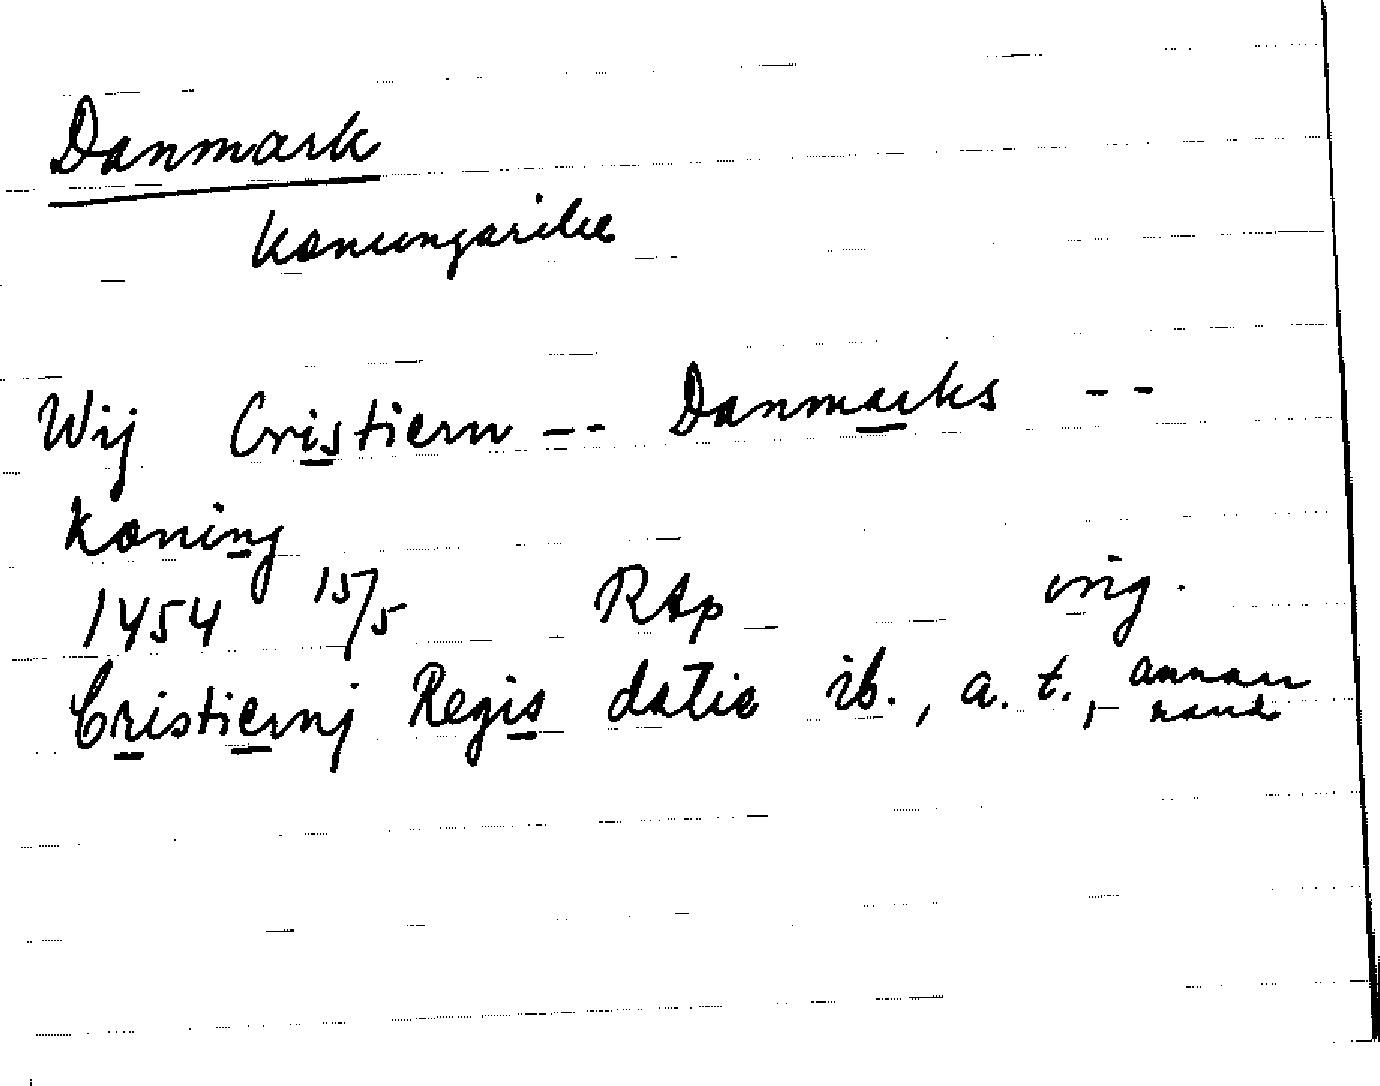 Danmark
konungarike
Wij Cristiern -- Danmarks --
koning
1454 15/5 RAp orig.
Cristiernj Regis datie ib., a. t., annan
hand